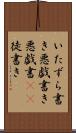 いたずら書
き悪戯書き
悪戯書
徒書き